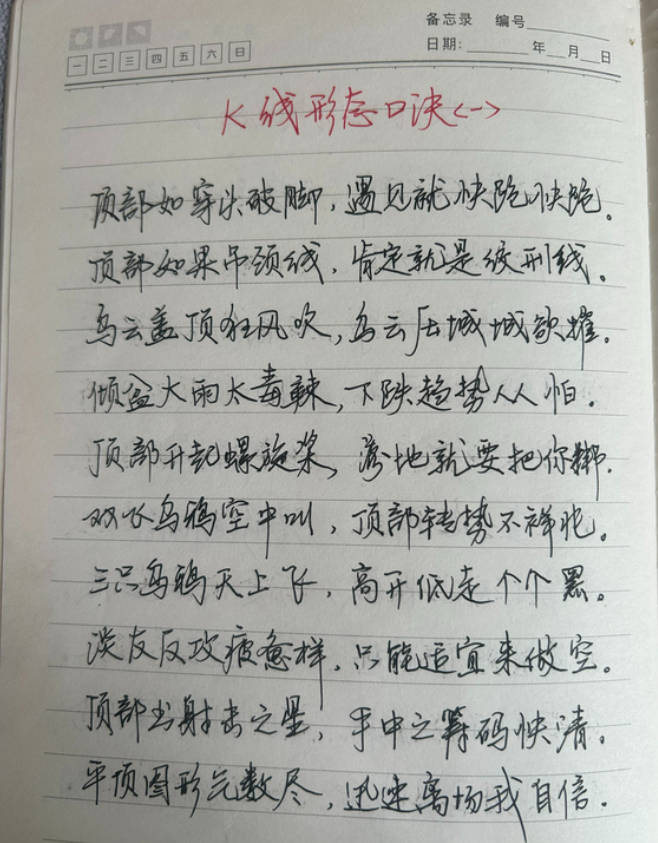 备忘录 编号
一 二 三 四 五 六 日
日期: 年 月 日
K线形态口决<一>
顶部如穿头破脚，遇见就快跑快跑。
顶部如果吊颈线，肯定就是绞刑线。
乌云盖顶狂风吹，乌云压城城欲摧。
倾盆大雨太毒辣，下跌趋势人人怕。
顶部升起螺旋桨，落地就要把你绑.
双飞乌鸦空中叫，顶部转势不祥兆。
三只乌鸦天上飞，高开低走个个黑。
淡友反攻疲惫样，只能适宜来做空。
顶部出射击之星，手中之筹码快清。
平顶图形气数尽，迅速离场我自信.